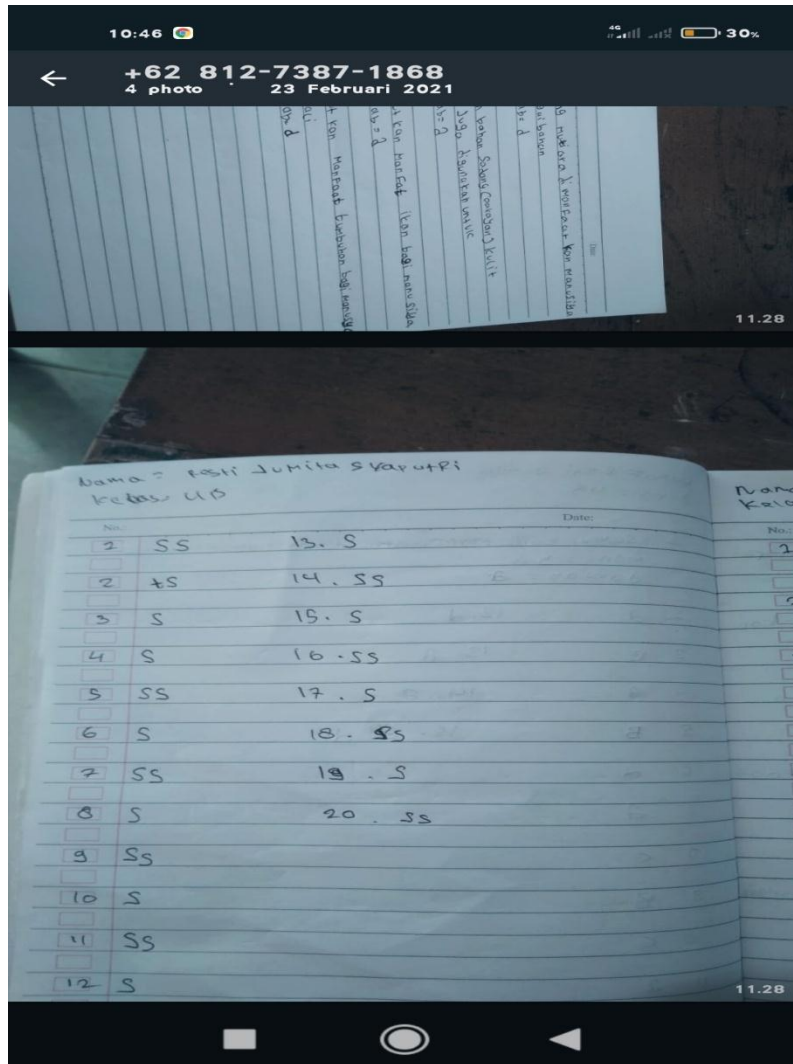 10:46
4G
30%
+62 812-7387-1868
4 photo · 23 Februari 2021
Date
mutiara di manfaat kan manusia
bahan
b= d
bahan Sotong (
) kulit
Juga digunakan untuk
ab= 2
t kan Manfaat ikan bagi manusia
ab = 2
t kan Manfaat tumbuhan bagi manusia
d
11.28
Nama = Resti Jumita
Kelas
No.:
Date:
2 SS 13. S
2 tS 14. SS
3 S 15. S
4 S 16. SS
5 SS 17. S
6 S 18. SS
7 SS 19. S
8 S 20. SS
9 SS
10 S
11 SS
12 S
Nam
Kela
No.:
2
11.28